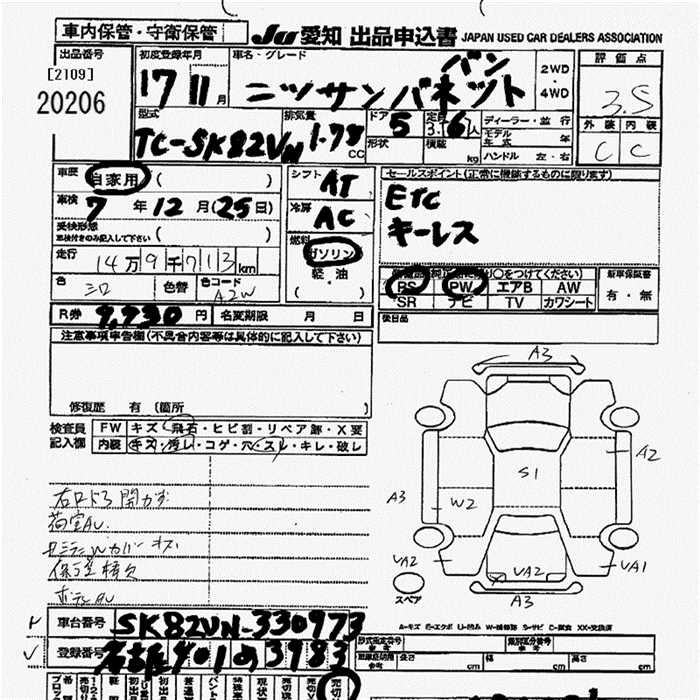 車内保管・守衛保管
JU 愛知 出品申込書 JAPAN USED CAR DEALERS ASSOCIATION
出品番号
[2109]
20206
初度登録年月
17 11月
車名・グレード
ニッサンバネット
バン
2WD
・
4WD
評価点
3.5
外装 内装
C C
型式
TC-SK82VN
排気量
1.78
CC
ドア
5
形状
定員
3.6人
積載
kg
ディーラー・並行
モデル年式 年
ハンドル 左・右
車歴
自家用 ( )
車検 7年 12月(25日)
受検形態
車検付きのみ記入して下さい ( )
走行
14万9千713km
色
シロ
色替
色コード
A2W
シフト
AT
冷房
AC
燃料
ガソリン
軽・油
( )
セールスポイント(正常に機能するものに限ります)
ETC
キーレス
○をつけてください)
PS PW エアB AW
SR ナビ TV カワシート
新車保証書
有・無
後日品
R券 9,930円
名変期限 月 日
注意事項申告欄(不具合内容等は具体的に記入して下さい)
修復歴 有(箇所 )
検査員
記入欄
FW キズ・飛石・ヒビ割・リペア跡・X要
内装 キズ・汚レ・コゲ・穴・スレ・キレ・破レ
荷室AU
A3
A2
S1
A3
W2
VA2
VA2
VA1
A3
スペア
A-キズ E-エクボ U-凹み W-補修跡 S-サビ C-腐食 XX-交換済
車台番号 SK82VN-330973
登録番号 名古屋401め3983
型式指定番号
類別区分番号
長さ cm
幅 cm
高さ cm